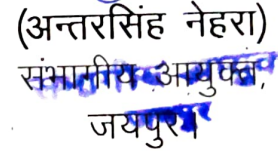 (अन्तरसिंह नेहरा)
संभागीय आयुक्त,
जयपुर।